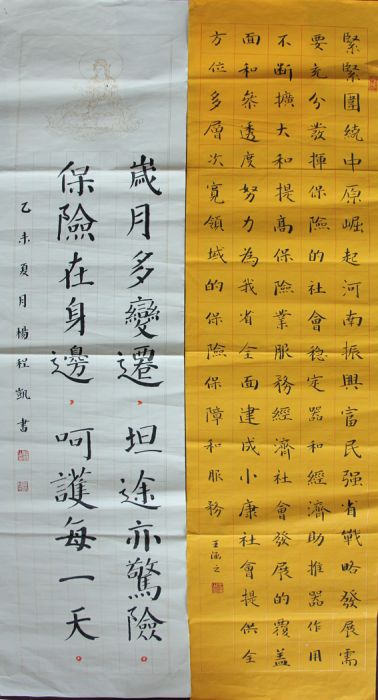 緊緊圍繞中原崛起河南振興富民强省戰略發展需
要充分發揮保險的社會稳定器和經濟助推器作用
不斷擴大和提高保險業服務經濟社會發展的覆蓋
面和參透度努力為我省全面建成小康社會提供全
方位多層次寬領域的保險保障和服務
歲月多變遷，坦途亦驚險。
保險在身邊，呵護每一天。
乙未夏月楊程凱書